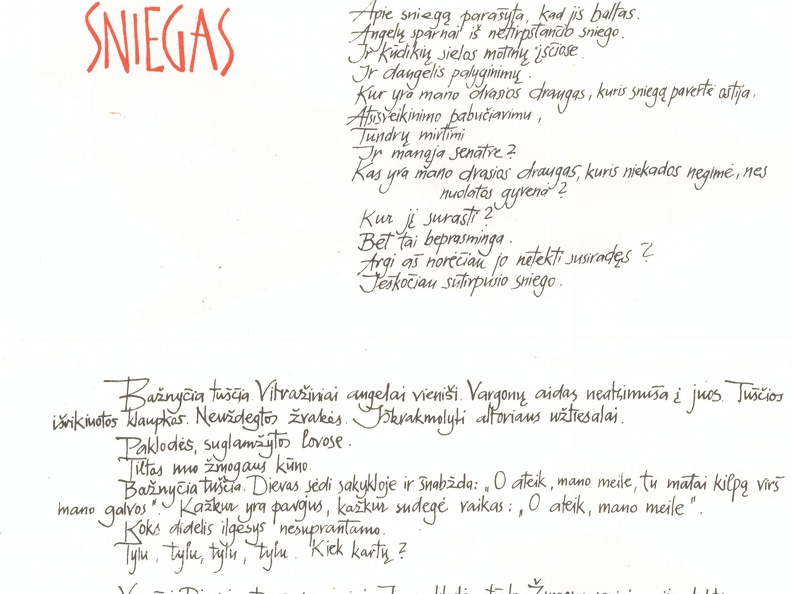 SNIEGAS
Apie sniegą parašyta, kad jis baltas.
Angelų sparnai iš netirpstančio sniego.
Ir kūdikių sielos motinų įsčiose.
Ir daugelis palyginimų.
Kur yra mano dvasios draugas, kuris sniegą pavertė ašija.
Atsisveikinimo pabučiavimu,
Tundrų mirtimi
Ir manąja senatve?
Kas yra mano dvasios draugas, kuris niekados negimė, nes
nuolatos gyvena?
Kur jį surasti?
Bet tai beprasminga.
Argi aš norėčiau jo netekti susiradęs?
Ieškočiau sutirpusio sniego.
Bažnyčia tuščia. Vitražiniai angelai vieniši. Vargonų aidas neatsimuša į juos. Tuščios
išrikiuotos klaupkos. Neuždegtos žvakės. Iškrakmolyti altoriaus užtiesalai.
Paklodės, suglamžytos lovose.
Tiltas nuo žmogaus kūno.
Bažnyčia tuščia. Dievas sėdi sakykloje ir šnabžda: „O ateik, mano meile, tu matai kilpą virš
mano galvos". Kažkur yra pavojus, kažkur sudegė vaikas: „O ateik, mano meile".
Koks didelis ilgesys nesuprantamo.
Tylu, tylu, tylu, tylu. Kiek kartų?